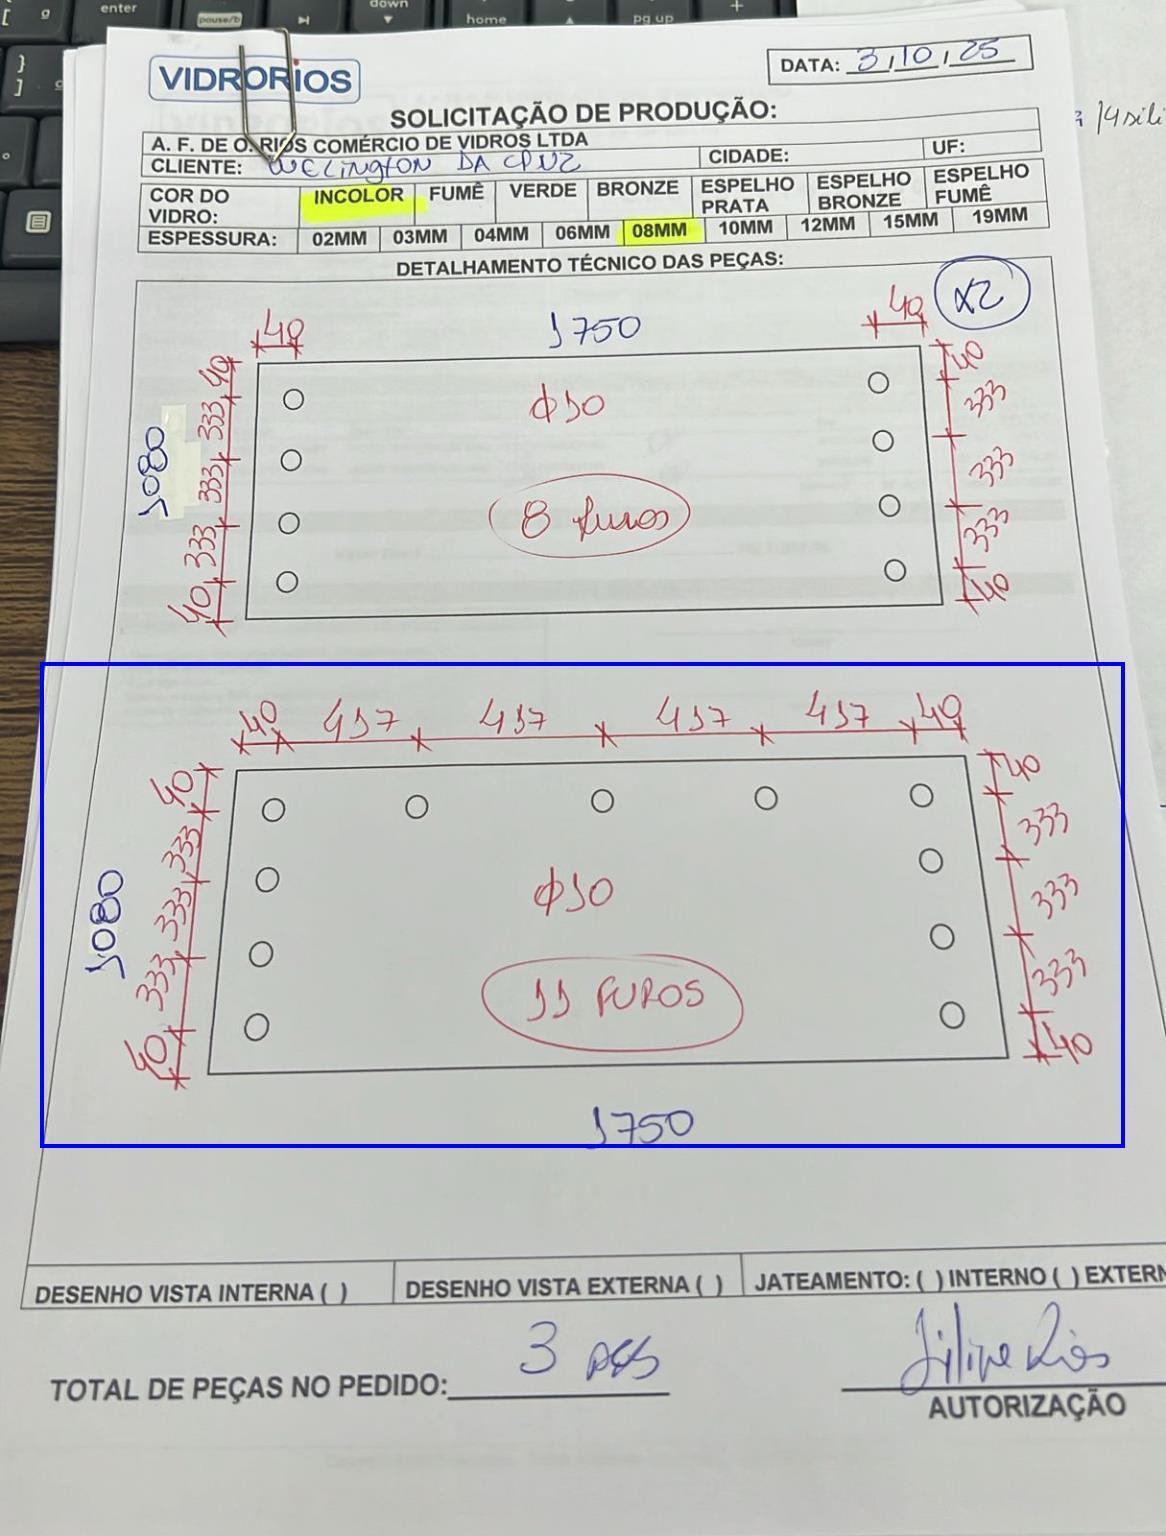 enter
pause/b
down
home
pg up
VIDRORIOS
DATA: 3/10/25
SOLICITAÇÃO DE PRODUÇÃO:
A. F. DE O. RIOS COMÉRCIO DE VIDROS LTDA
CLIENTE: WELINGTON DA CRUZ CIDADE: UF:
COR DO VIDRO: INCOLOR FUMÊ VERDE BRONZE ESPELHO PRATA ESPELHO BRONZE ESPELHO FUMÊ
ESPESSURA: 02MM 03MM 04MM 06MM 08MM 10MM 12MM 15MM 19MM
DETALHAMENTO TÉCNICO DAS PEÇAS:
X2
40 1750 40
40 333 333 333 40
1080
φ10
8 furos
40 333 333 333 40
40 417 417 417 417 40
40 333 333 333 40
1080
φ10
11 FUROS
40 333 333 333 40
1750
DESENHO VISTA INTERNA ( ) DESENHO VISTA EXTERNA ( ) JATEAMENTO: ( ) INTERNO ( ) EXTERN
TOTAL DE PEÇAS NO PEDIDO: 3 pçs
Filipe Rios
AUTORIZAÇÃO